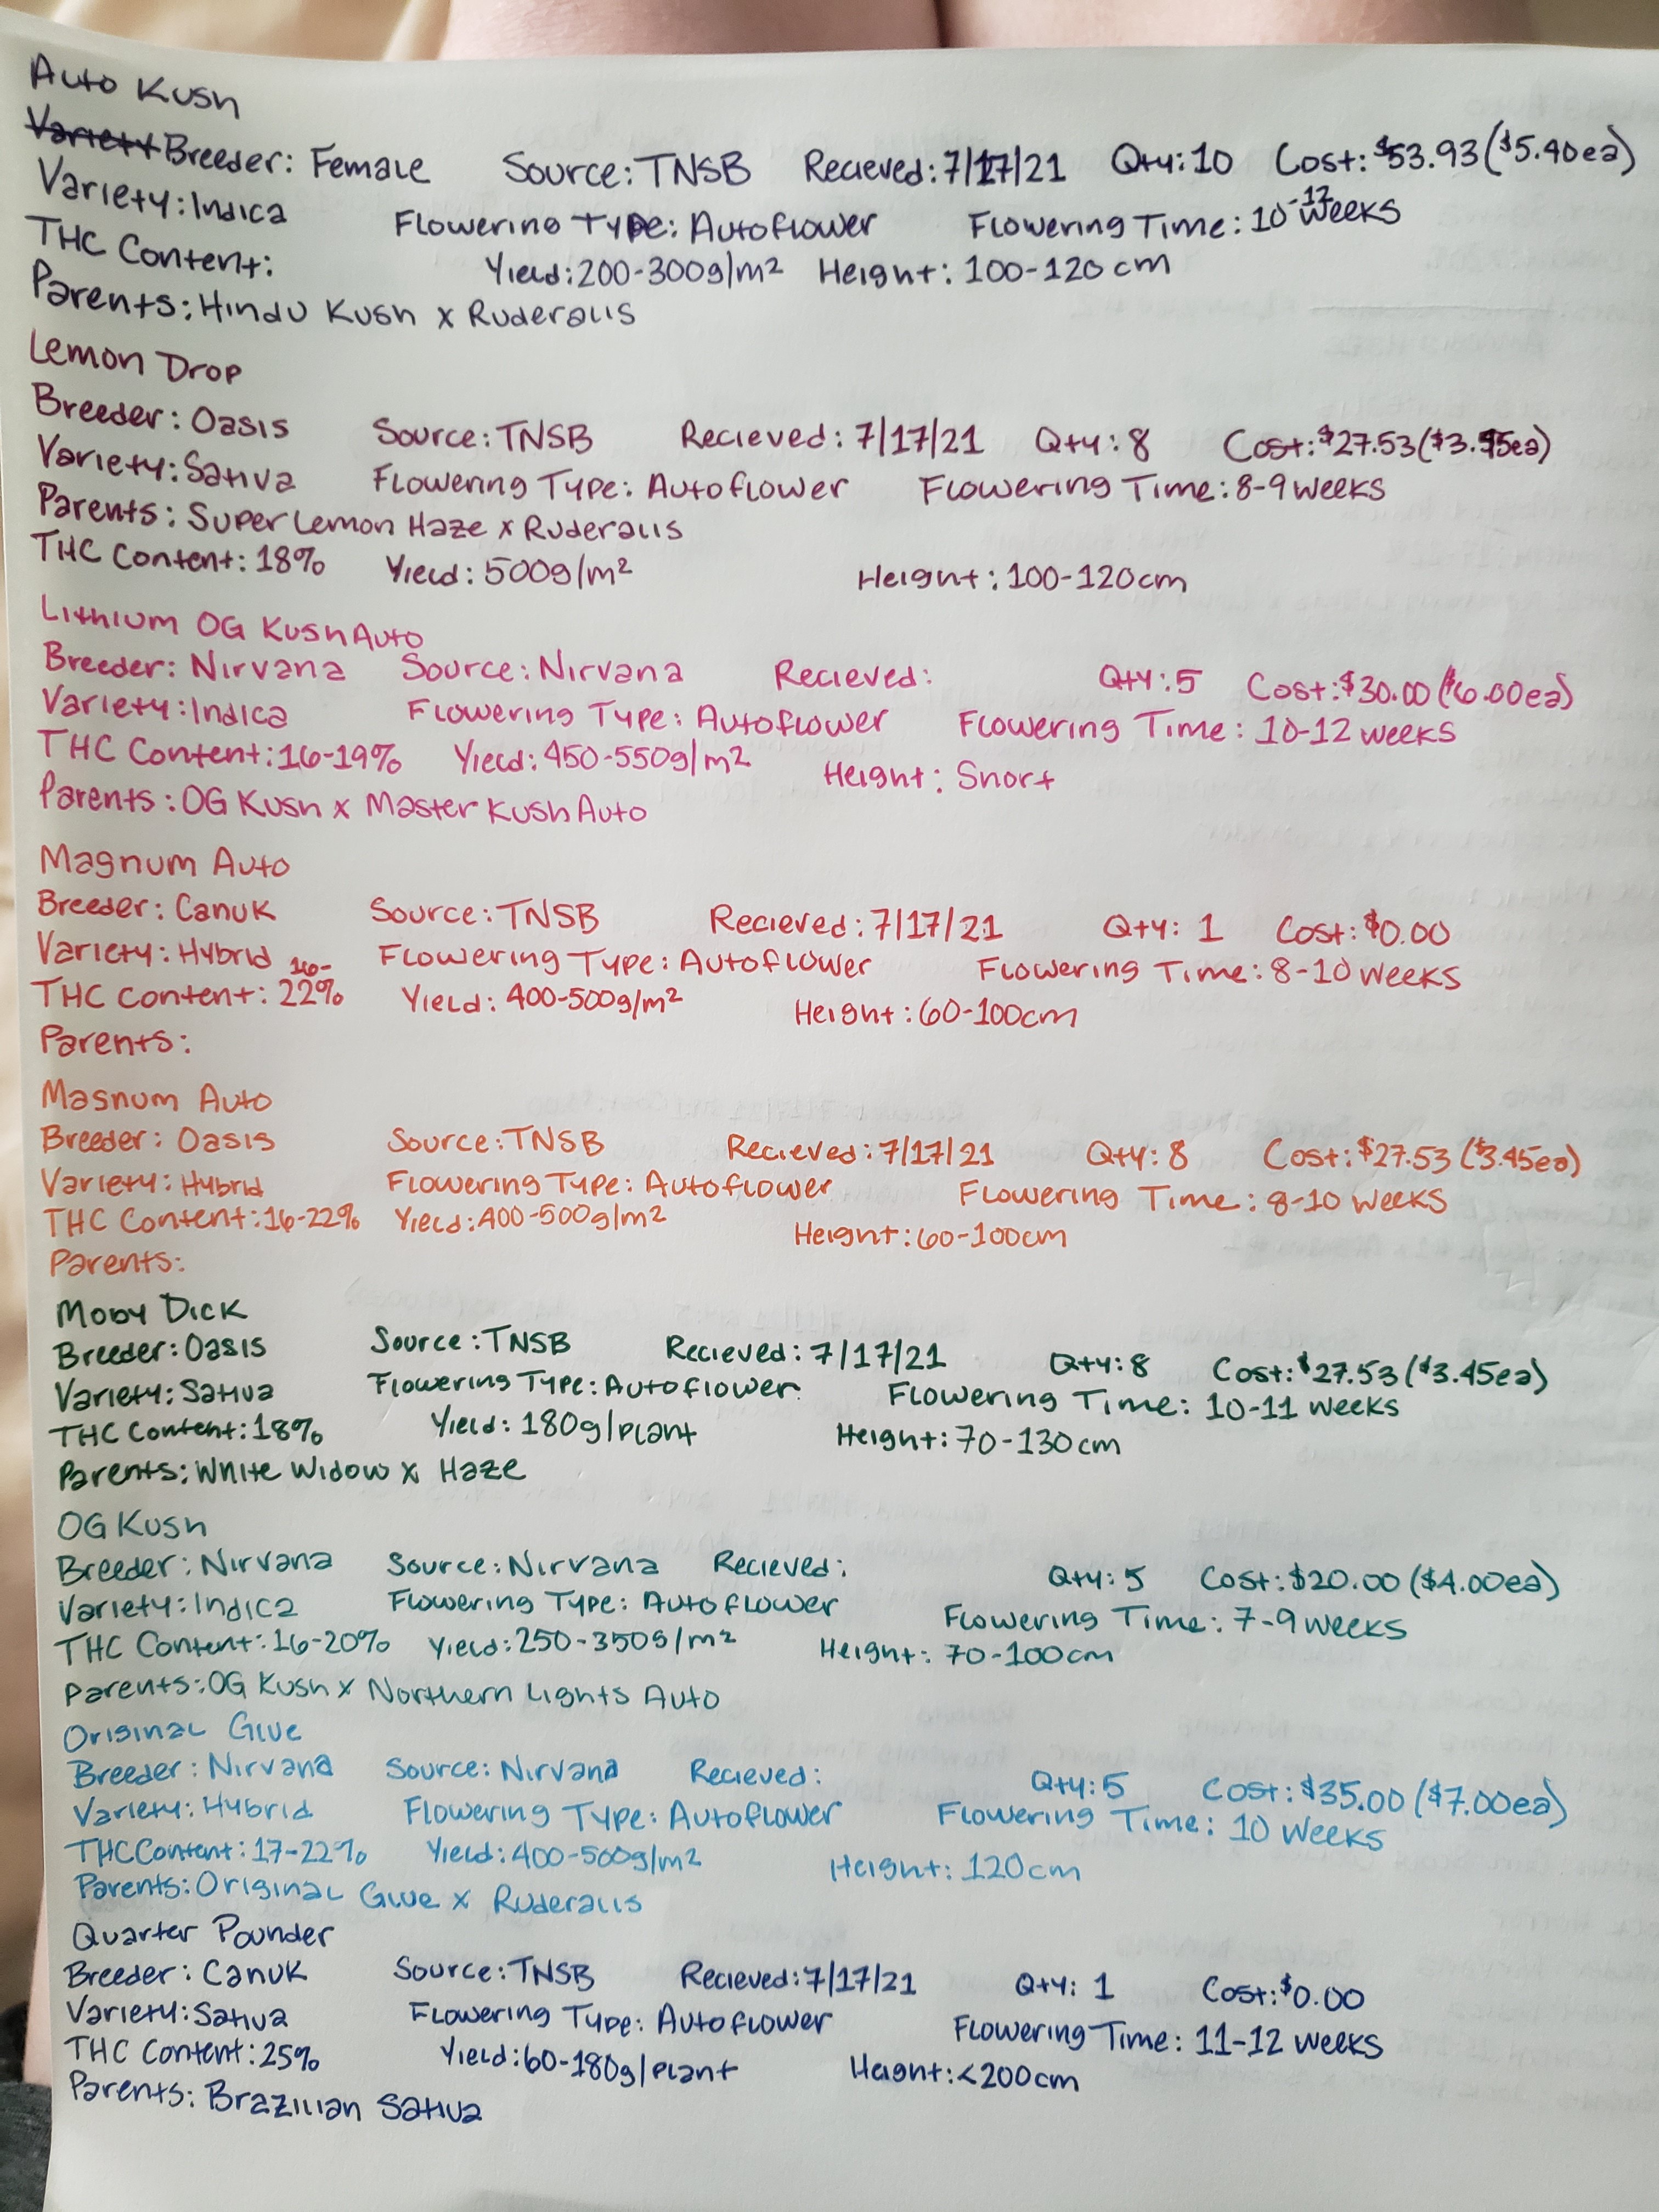 Auto Kush
Breeder: Female Source: TNSB Recieved: 7/17/21 Qty: 10 Cost: $53.93 ($5.40ea)
Variety: Indica Flowering Type: Autoflower Flowering Time: 10-12 weeks
THC Content: Yield: 200-300g/m² Height: 100-120 cm
Parents: Hindu Kush x Ruderalis
Lemon Drop
Breeder: Oasis Source: TNSB Recieved: 7/17/21 Qty: 8 Cost: $27.53 ($3.45ea)
Variety: Sativa Flowering Type: Autoflower Flowering Time: 8-9 weeks
Parents: Super Lemon Haze x Ruderalis
THC Content: 18% Yield: 500g/m² Height: 100-120cm
Lithium OG Kush Auto
Breeder: Nirvana Source: Nirvana Recieved: Qty: 5 Cost: $30.00 ($6.00ea)
Variety: Indica Flowering Type: Autoflower Flowering Time: 10-12 weeks
THC Content: 16-19% Yield: 450-550g/m² Height: Short
Parents: OG Kush x Master Kush Auto
Magnum Auto
Breeder: Canuk Source: TNSB Recieved: 7/17/21 Qty: 1 Cost: $0.00
Variety: Hybrid Flowering Type: Autoflower Flowering Time: 8-10 weeks
THC Content: 16-22% Yield: 400-500g/m² Height: 60-100cm
Parents:
Magnum Auto
Breeder: Oasis Source: TNSB Recieved: 7/17/21 Qty: 8 Cost: $27.53 ($3.45ea)
Variety: Hybrid Flowering Type: Autoflower Flowering Time: 8-10 weeks
THC Content: 16-22% Yield: 400-500g/m² Height: 60-100cm
Parents:
Moby Dick
Breeder: Oasis Source: TNSB Recieved: 7/17/21 Qty: 8 Cost: $27.53 ($3.45ea)
Variety: Sativa Flowering Type: Autoflower Flowering Time: 10-11 weeks
THC Content: 18% Yield: 180g/plant Height: 70-130cm
Parents: White Widow x Haze
OG Kush
Breeder: Nirvana Source: Nirvana Recieved: Qty: 5 Cost: $20.00 ($4.00ea)
Variety: Indica Flowering Type: Autoflower Flowering Time: 7-9 weeks
THC Content: 16-20% Yield: 250-350g/m² Height: 70-100cm
Parents: OG Kush x Northern Lights Auto
Original Glue
Breeder: Nirvana Source: Nirvana Recieved: Qty: 5 Cost: $35.00 ($7.00ea)
Variety: Hybrid Flowering Type: Autoflower Flowering Time: 10 weeks
THC Content: 17-22% Yield: 400-500g/m² Height: 120cm
Parents: Original Glue x Ruderalis
Quarter Pounder
Breeder: Canuk Source: TNSB Recieved: 7/17/21 Qty: 1 Cost: $0.00
Variety: Sativa Flowering Type: Autoflower Flowering Time: 11-12 weeks
THC Content: 25% Yield: 60-180g/plant Height: <200cm
Parents: Brazilian Sativa